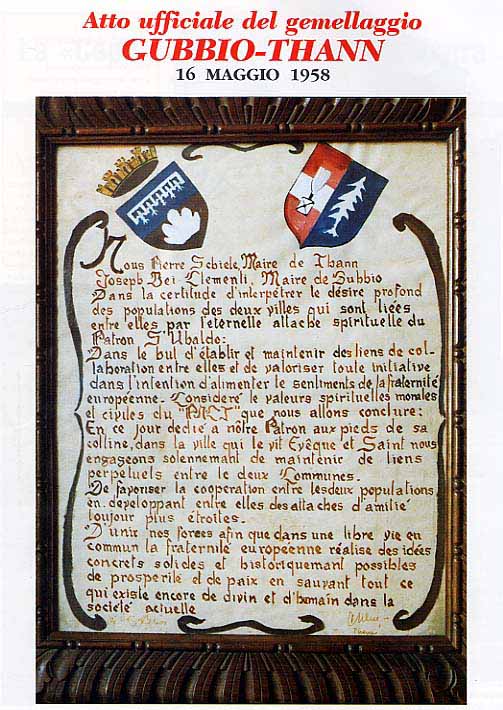 Atto ufficiale del gemellaggio
GUBBIO-THANN
16 MAGGIO 1958
Nous Pierre Schiele, Maire de Thann
Joseph Bei Clementi, Maire de Gubbio
Dans la certitude d'interpétrer le désire profond
des populations des deux villes qui sont liées
entre elles par l'eternelle attache spirituelle du
Patron S. Ubaldo:
Dans le but d'établir et maintenir des liens de col-
laboration entre elles et de valoriser toute initiative
dans l'intention d'alimenter le sentiments de la fraternité
européenne. Considerè le valeurs spirituelles morales
et civiles du "PACT" que nous allons conclure:
En ce jour dediè a nôtre Patron aux pieds de sa
colline, dans la ville qui le vit Evêque et Saint nous
engageons solennemant de maintenir de liens
perpetuels entre le deux Communes.
De favoriser la cooperation entre les deux populations
en developpant entre elles des attaches d'amitié
toujour plus étroites.
D'unir nos forces afin que dans une libre vie en
commun la fraternité européenne réalise des idées
concrets solides et historiquemant possibles
de prosperité et de paix en sauvant tout ce
qui existe encore de divin et d'humain dans la
société actuelle